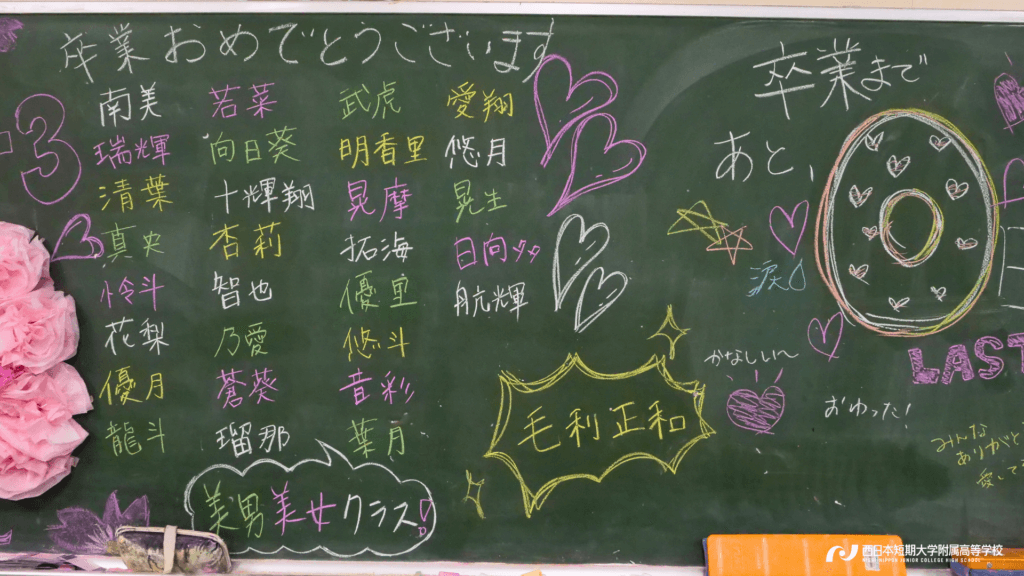 卒業おめでとうございます
-3
南美 若菜 武虎 愛翔
瑞輝 向日葵 明香里 悠月
清葉 十輝翔 晃摩 晃生
真央 杏莉 拓海 日向
怜斗 智也 優里 航輝
花梨 乃愛 悠斗
優月 蒼葵 音彩
龍斗 瑠那 葉月
美男美女クラス!
毛利正和
卒業まで
あと、
0
日
涙
かなしい〜
おわった!
LAST
みんな
ありがと
愛して
西日本短期大学附属高等学校
NISHI-NIPPON JUNIOR COLLEGE HIGH SCHOOL